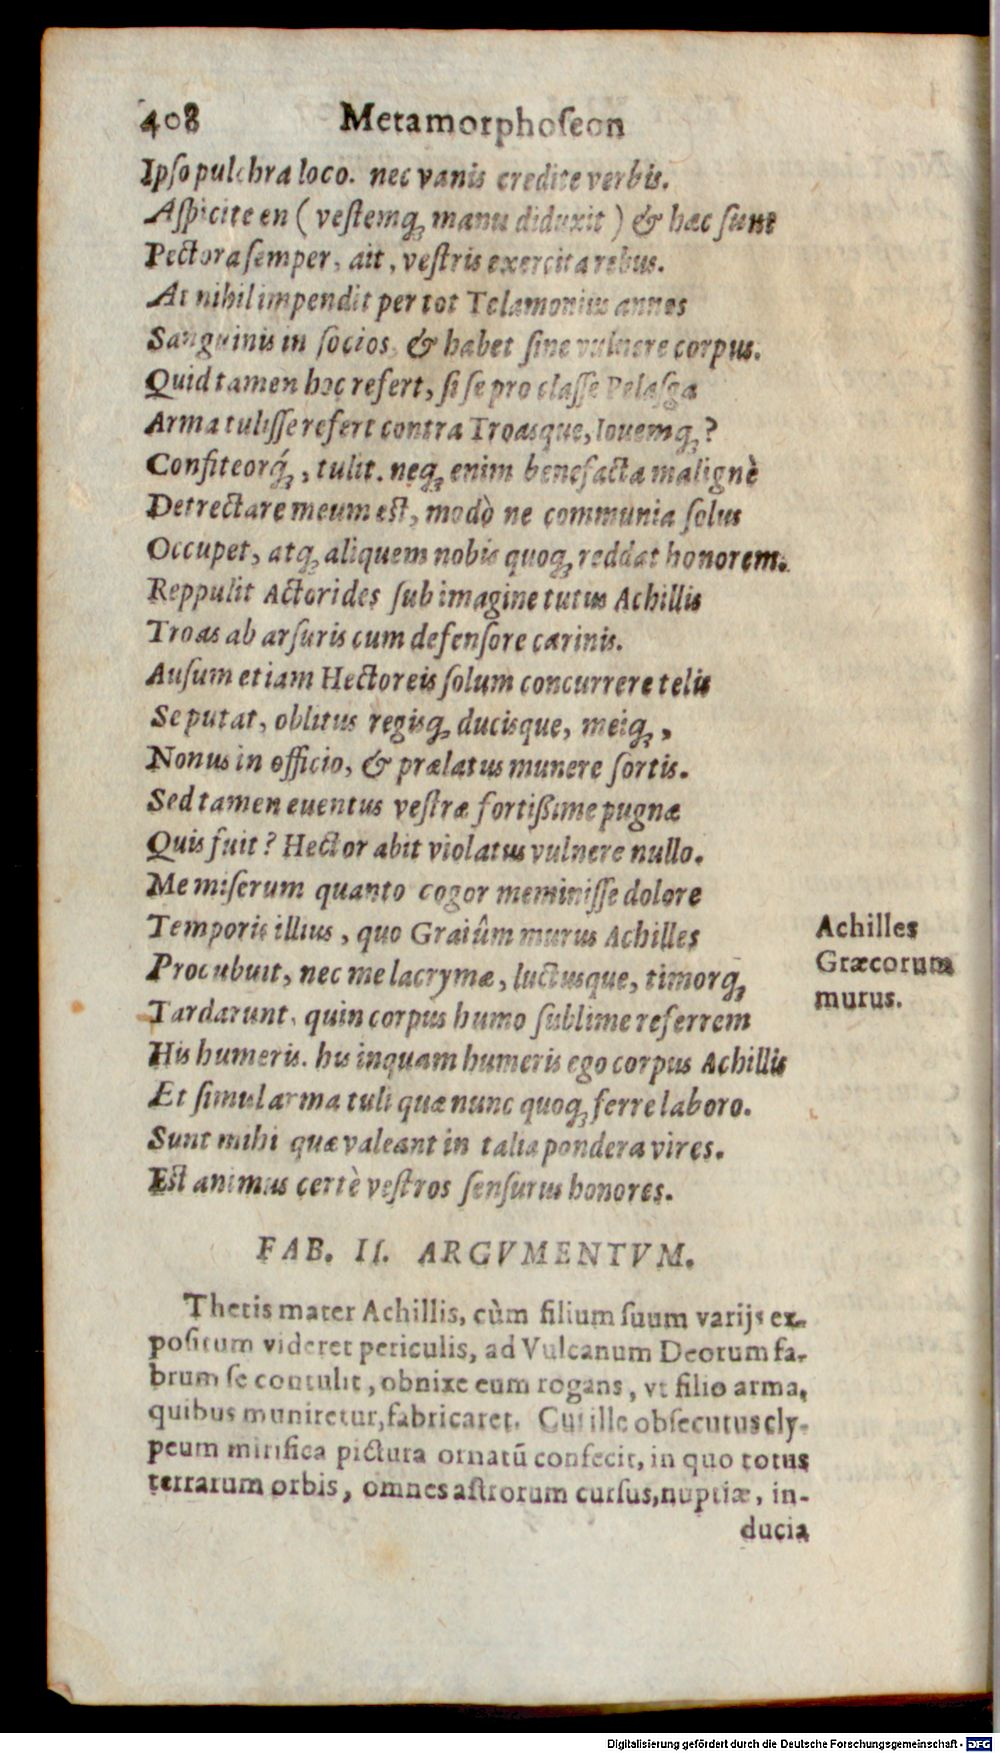 408 Metamorphoſeon
Ipſo pulchra loco. nec vanis credite verbis.
Aſpicite en ( veſtemq; manu diduxit ) & hæc ſunt
Pectora ſemper, ait, veſtris exercita rebus.
At nihil impendit per tot Telamonius annos
Sanguinis in ſocios, & habet ſine vulnere corpus.
Quid tamen hoc refert, ſi ſe pro claſſe Pelaſga
Arma tuliſſe refert contra Troasque, Iouemq; ?
Confiteorq́;, tulit. neq; enim benefacta malignè
Detrectare meum est, modò ne communia ſolus
Occupet, atq; aliquem nobis quoq; reddat honorem.
Reppulit Actorides ſub imagine tutus Achillis
Troas ab arſuris cum defenſore carinis.
Auſum etiam Hectoreis ſolum concurrere telis
Se putat, oblitus regisq; ducisque, meiq; ,
Nonus in officio, & prælatus munere ſortis.
Sed tamen euentus veſtræ fortißime pugnæ
Quis fuit? Hector abit violatus vulnere nullo.
Me miſerum quanto cogor meminiſſe dolore
Temporis illius, quo Graiûm murus Achilles
Procubuit, nec me lacrymæ, luctusque, timorq;
Tardarunt, quin corpus humo ſublime referrem
His humeris. his inquam humeris ego corpus Achillis
Et ſimul arma tuli quæ nunc quoq; ferre laboro.
Sunt mihi quæ valeant in talia pondera vires.
Est animus certè veſtros ſenſurus honores.
Achilles
Græcorum
murus.
FAB. II. ARGVMENTVM.
Thetis mater Achillis, cùm filium ſuum varijs ex-
poſitum videret periculis, ad Vulcanum Deorum fa-
brum ſe contulit, obnixe eum rogans, vt filio arma,
quibus muniretur, fabricaret. Cui ille obſecutus cly-
peum mirifica pictura ornatū confecit, in quo totus
terrarum orbis, omnes aſtrorum curſus, nuptiæ, in-
ducia
Digitalisierung gefördert durch die Deutsche Forschungsgemeinschaft - DFG